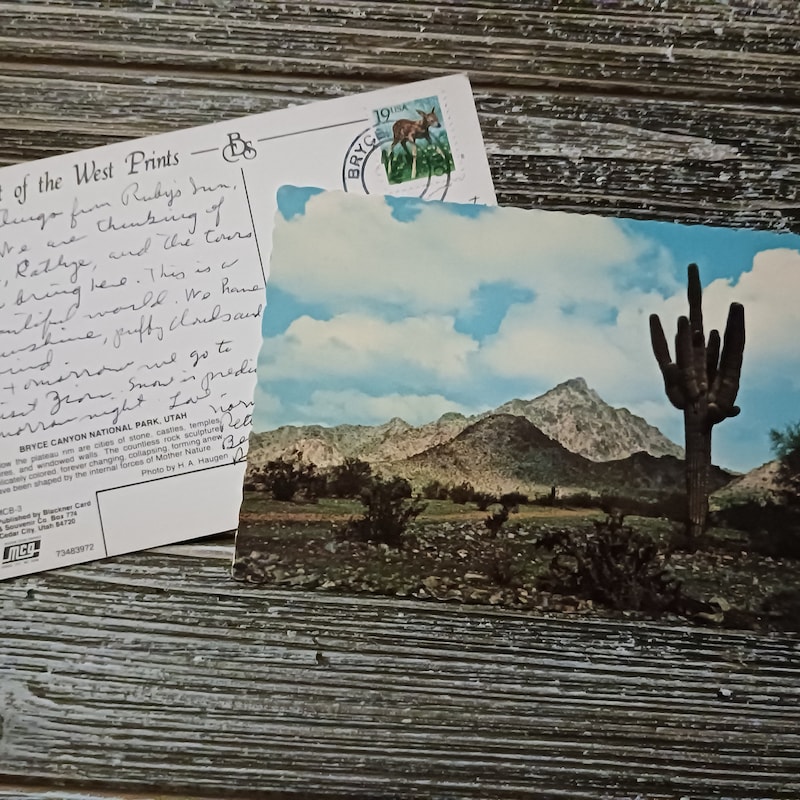 t of the West Prints
BDS
19 USA
BRYCE
from Ruby's Inn,
We are thinking of
, Kathye, and the tours
bring here. This is a
beautiful world. We have
sunshine, puffy clouds and
wind.
tomorrow we go to
visit Zion. Snow is predic
tomorrow night. Love
BRYCE CANYON NATIONAL PARK, UTAH
ow the plateau rim are cities of stone, castles, temples,
res, and windowed walls. The countless rock sculpture
elicately colored, forever changing, collapsing, forming anew
ave been shaped by the internal forces of Mother Nature
Photo by H. A. Haugen
MCB-3
Published by Blackner Card
& Souvenir Co. Box 774
Cedar City, Utah 84720
MCG
73483972